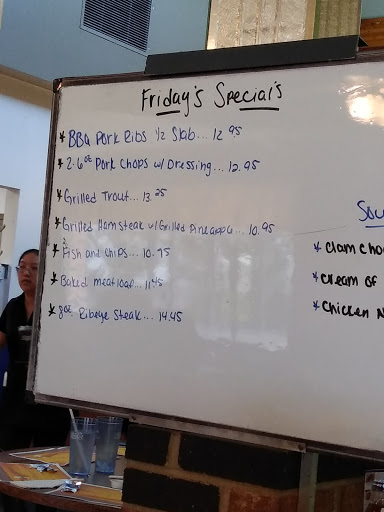 Friday's Specials
* BBQ Pork Ribs 1/2 Slab... 12 95
* 2-6oz Pork Chops w/ Dressing... 12.95
* Grilled Trout... 13.25
* Grilled Ham steak w/ Grilled Pineapple... 10.95
* Fish and chips... 10.95
* Baked meatloaf... 11.45
* 8oz Ribeye Steak... 14.45
* Clam Cho
* Cream of
* Chicken N